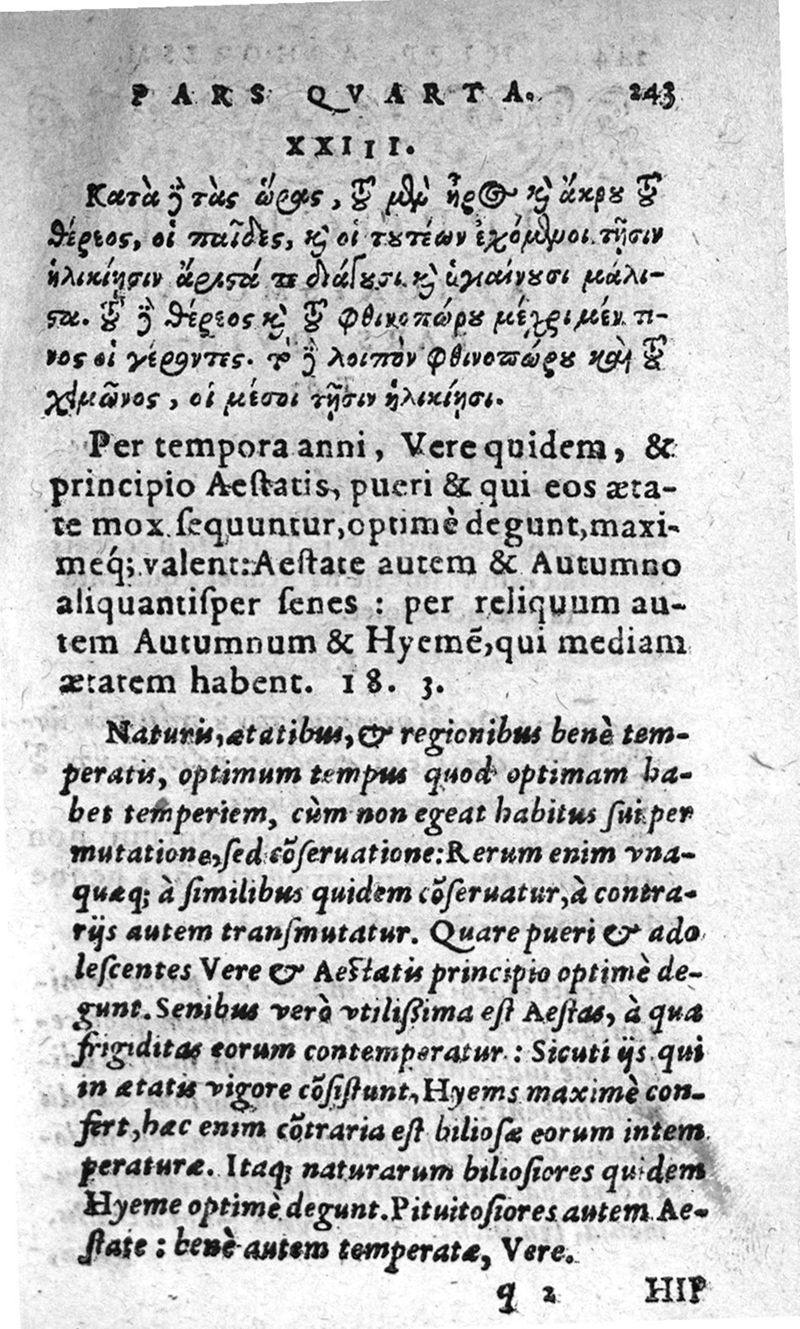 PARS QVARTA. 243
XXIII.
Κατὰ ȣ̓̀ τὰς ὥρας, τοῦ μὲν ἦρος καὶ ἄκρου τοῦ
θέρεος, οἱ παῖδες, καὶ οἱ τουτέων ἐχόμενοι τῇσιν
ἡλικίῃσιν ἄριστά τε διάγουσι καὶ ὑγιαίνουσι μάλι-
στα. τοῦ δὲ θέρεος καὶ τοῦ φθινοπώρου μέχρι μέν τι-
νος οἱ γέροντες. τὸ δὲ λοιπὸν φθινοπώρου καὶ τοῦ
χειμῶνος, οἱ μέσοι τῇσιν ἡλικίῃσι.
Per tempora anni, Vere quidem, &
principio Aeſtatis, pueri & qui eos æta-
te mox ſequuntur, optimè degunt, maxi-
meq́; valent: Aeſtate autem & Autumno
aliquantiſper ſenes : per reliquum au-
tem Autumnum & Hyemẽ, qui mediam
ætatem habent. 18. 3.
Naturis, ætatibus, & regionibus benè tem-
peratis, optimum tempus quod optimam ha-
bet temperiem, cùm non egeat habitus ſui per
mutatione, ſed cõſeruatione: Rerum enim vna-
quæq; à ſimilibus quidem cõſeruatur, à contra-
rijs autem tranſmutatur. Quare pueri & ado
leſcentes Vere & Aeſtatis principio optimè de-
gunt. Senibus verò vtiliſſima eſt Aeſtas, à qua
frigiditas eorum contemperatur : Sicuti ijs qui
in ætatis vigore cõſiſtunt, Hyems maximè con-
fert, hæc enim cõtraria eſt bilioſæ eorum intem
peraturæ. Itaq; naturarum bilioſiores quidem
Hyeme optimè degunt. Pituitoſiores autem Ae-
ſtate : benè autem temperatæ, Vere.
q 2 HIP